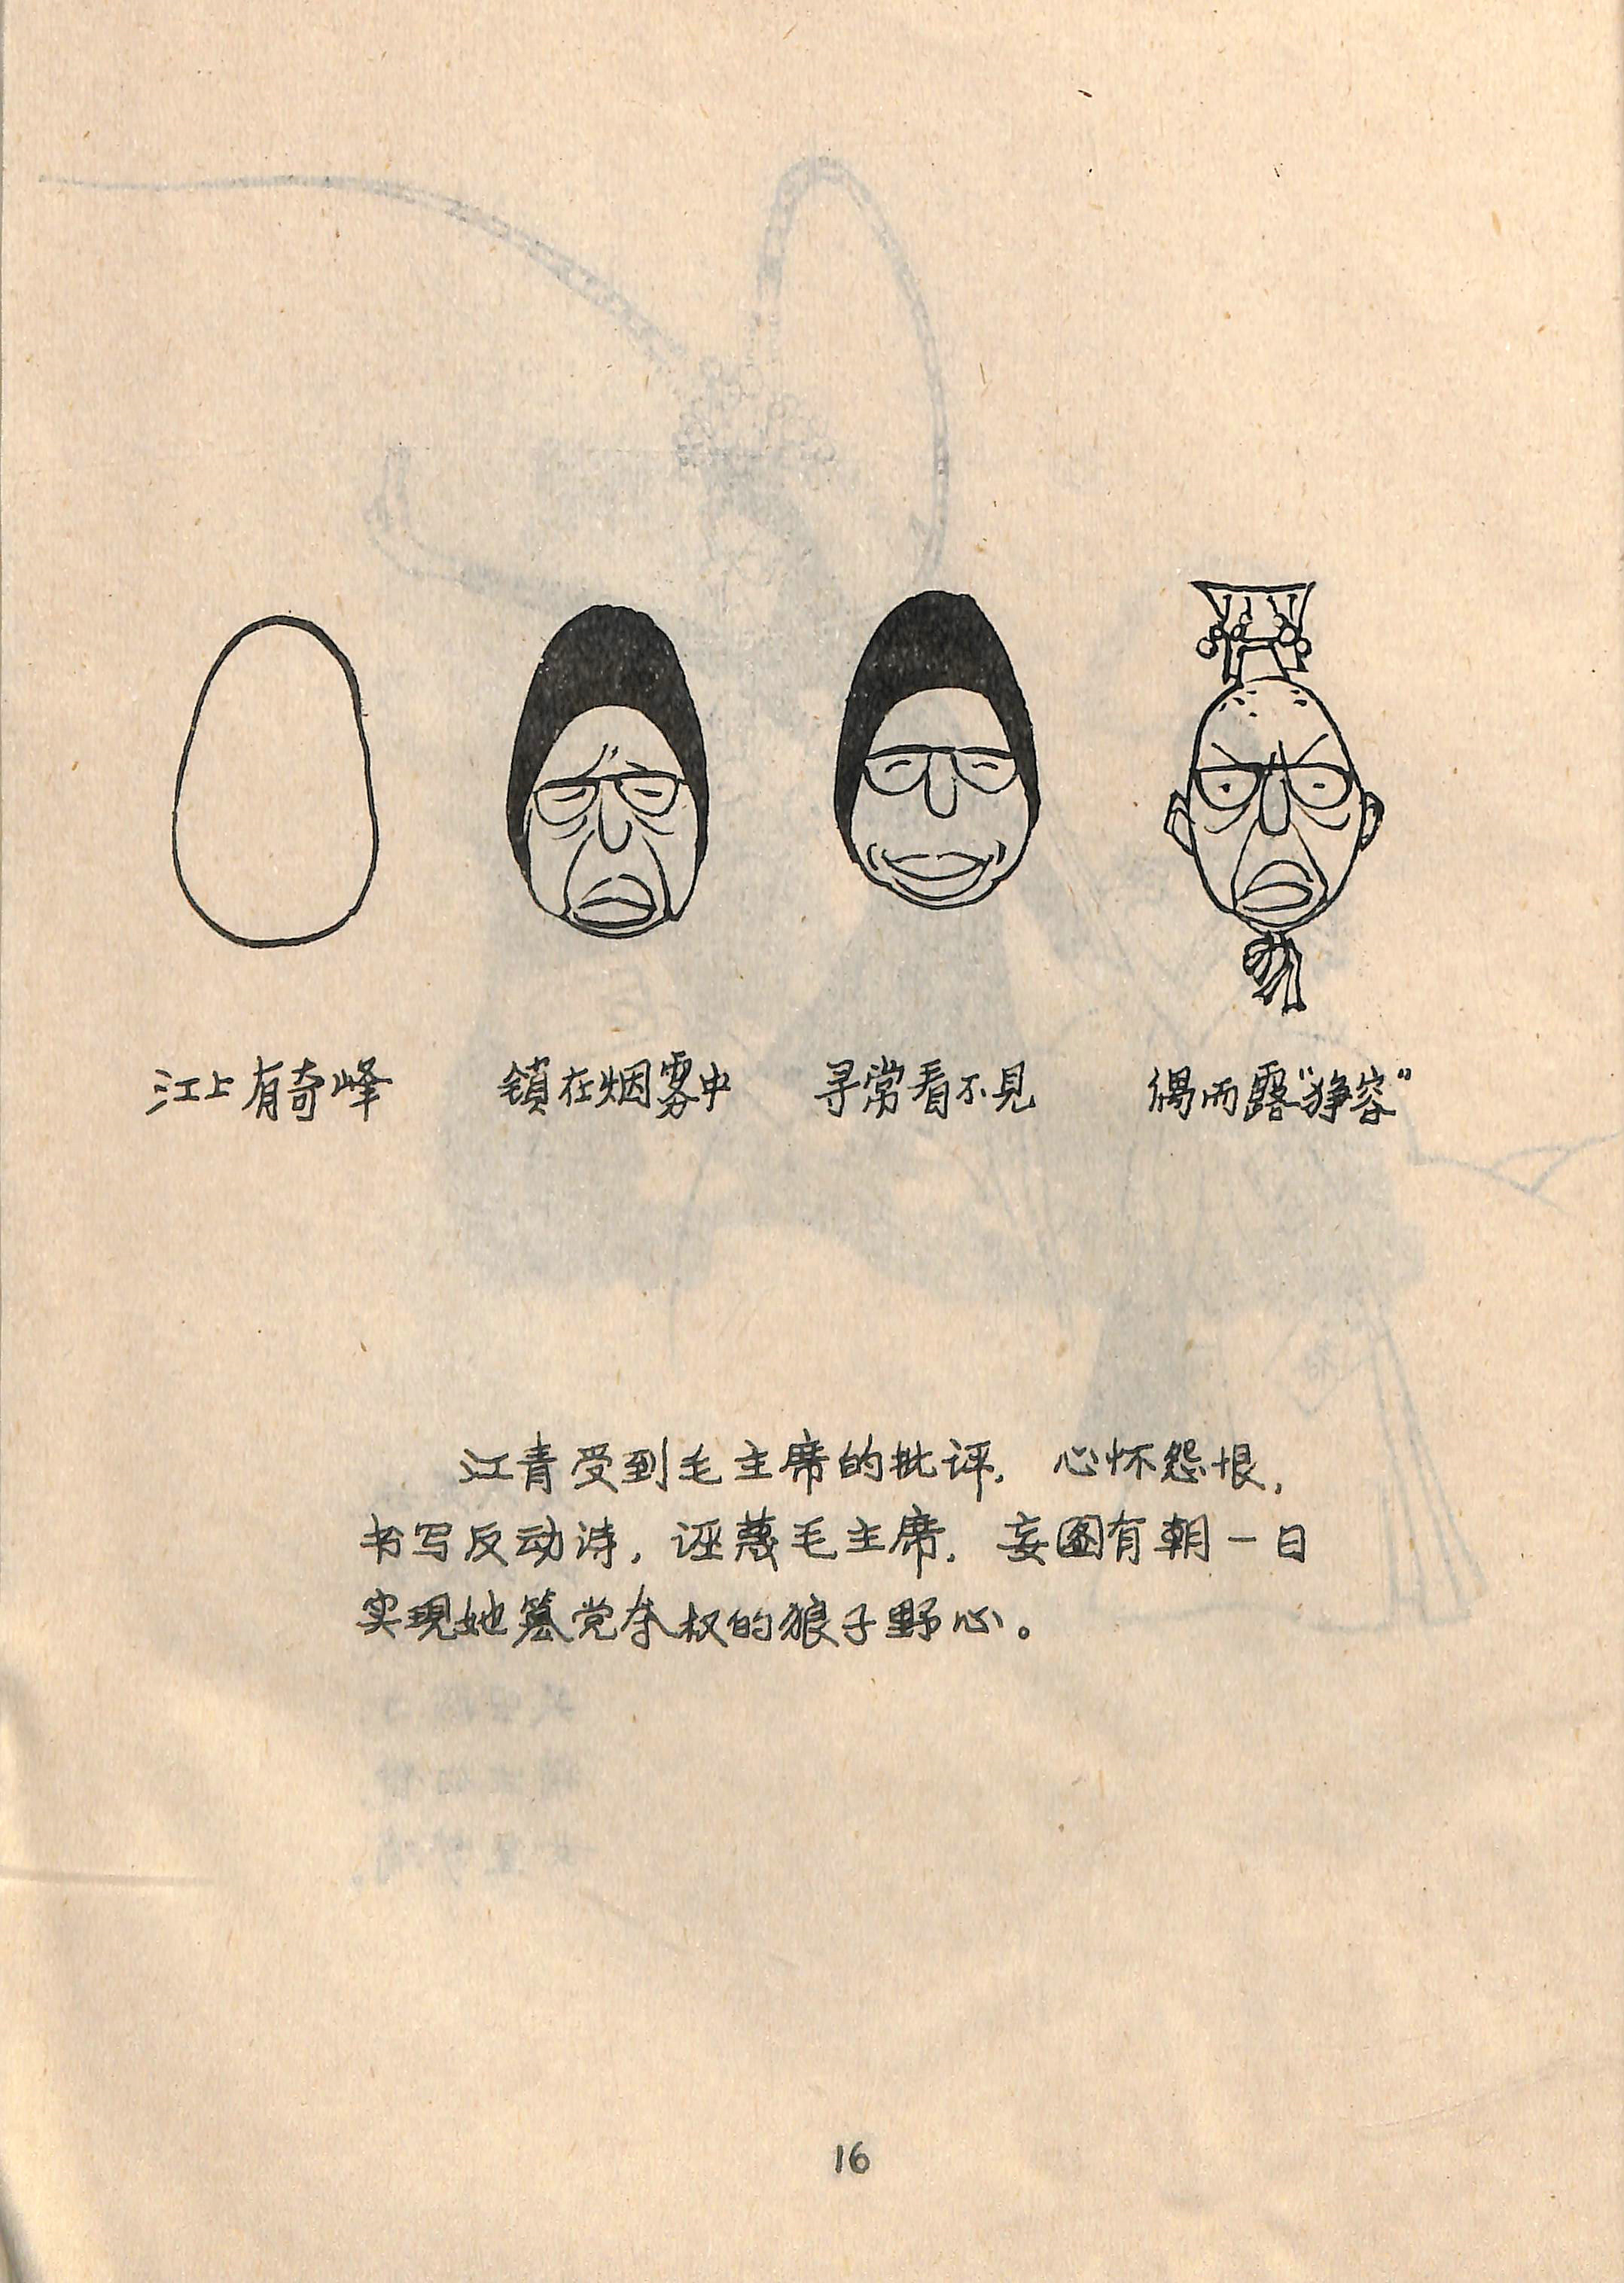 江上有奇峰
锁在烟雾中
寻常看不见
偶而露“狰容”
江青受到毛主席的批评，心怀怨恨，
书写反动诗，诬蔑毛主席，妄图有朝一日
实现她篡党夺权的狼子野心。
16